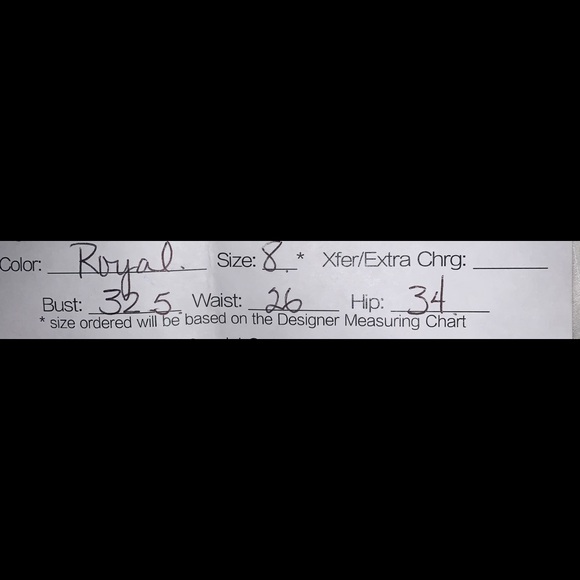 Color: Royal. Size: 8 * Xfer/Extra Chrg:
Bust: 32.5 Waist: 26 Hip: 34
* size ordered will be based on the Designer Measuring Chart